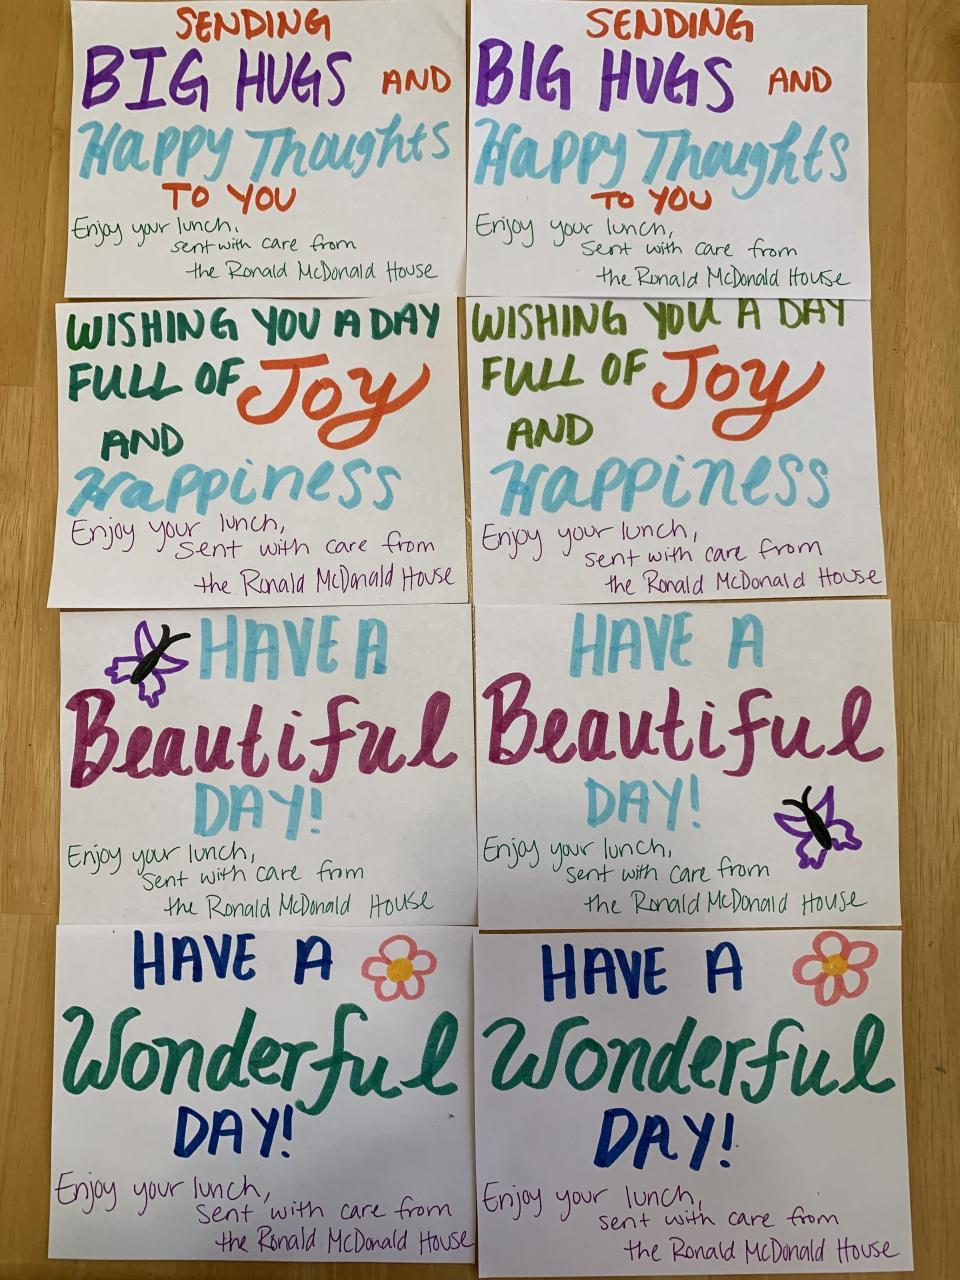 SENDING
BIG HUGS AND
Happy Thoughts
TO YOU
Enjoy your lunch,
sent with care from
the Ronald McDonald House
SENDING
BIG HUGS AND
Happy Thoughts
TO YOU
Enjoy your lunch,
sent with care from
the Ronald McDonald House
WISHING YOU A DAY
FULL OF Joy
AND
Happiness
Enjoy your lunch,
sent with care from
the Ronald McDonald House
WISHING YOU A DAY
FULL OF Joy
AND
Happiness
Enjoy your lunch,
sent with care from
the Ronald McDonald House
HAVE A
Beautiful
DAY!
Enjoy your lunch,
sent with care from
the Ronald McDonald House
HAVE A
Beautiful
DAY!
Enjoy your lunch,
sent with care from
the Ronald McDonald House
HAVE A
Wonderful
DAY!
Enjoy your lunch,
sent with care from
the Ronald McDonald House
HAVE A
Wonderful
DAY!
Enjoy your lunch,
sent with care from
the Ronald McDonald House